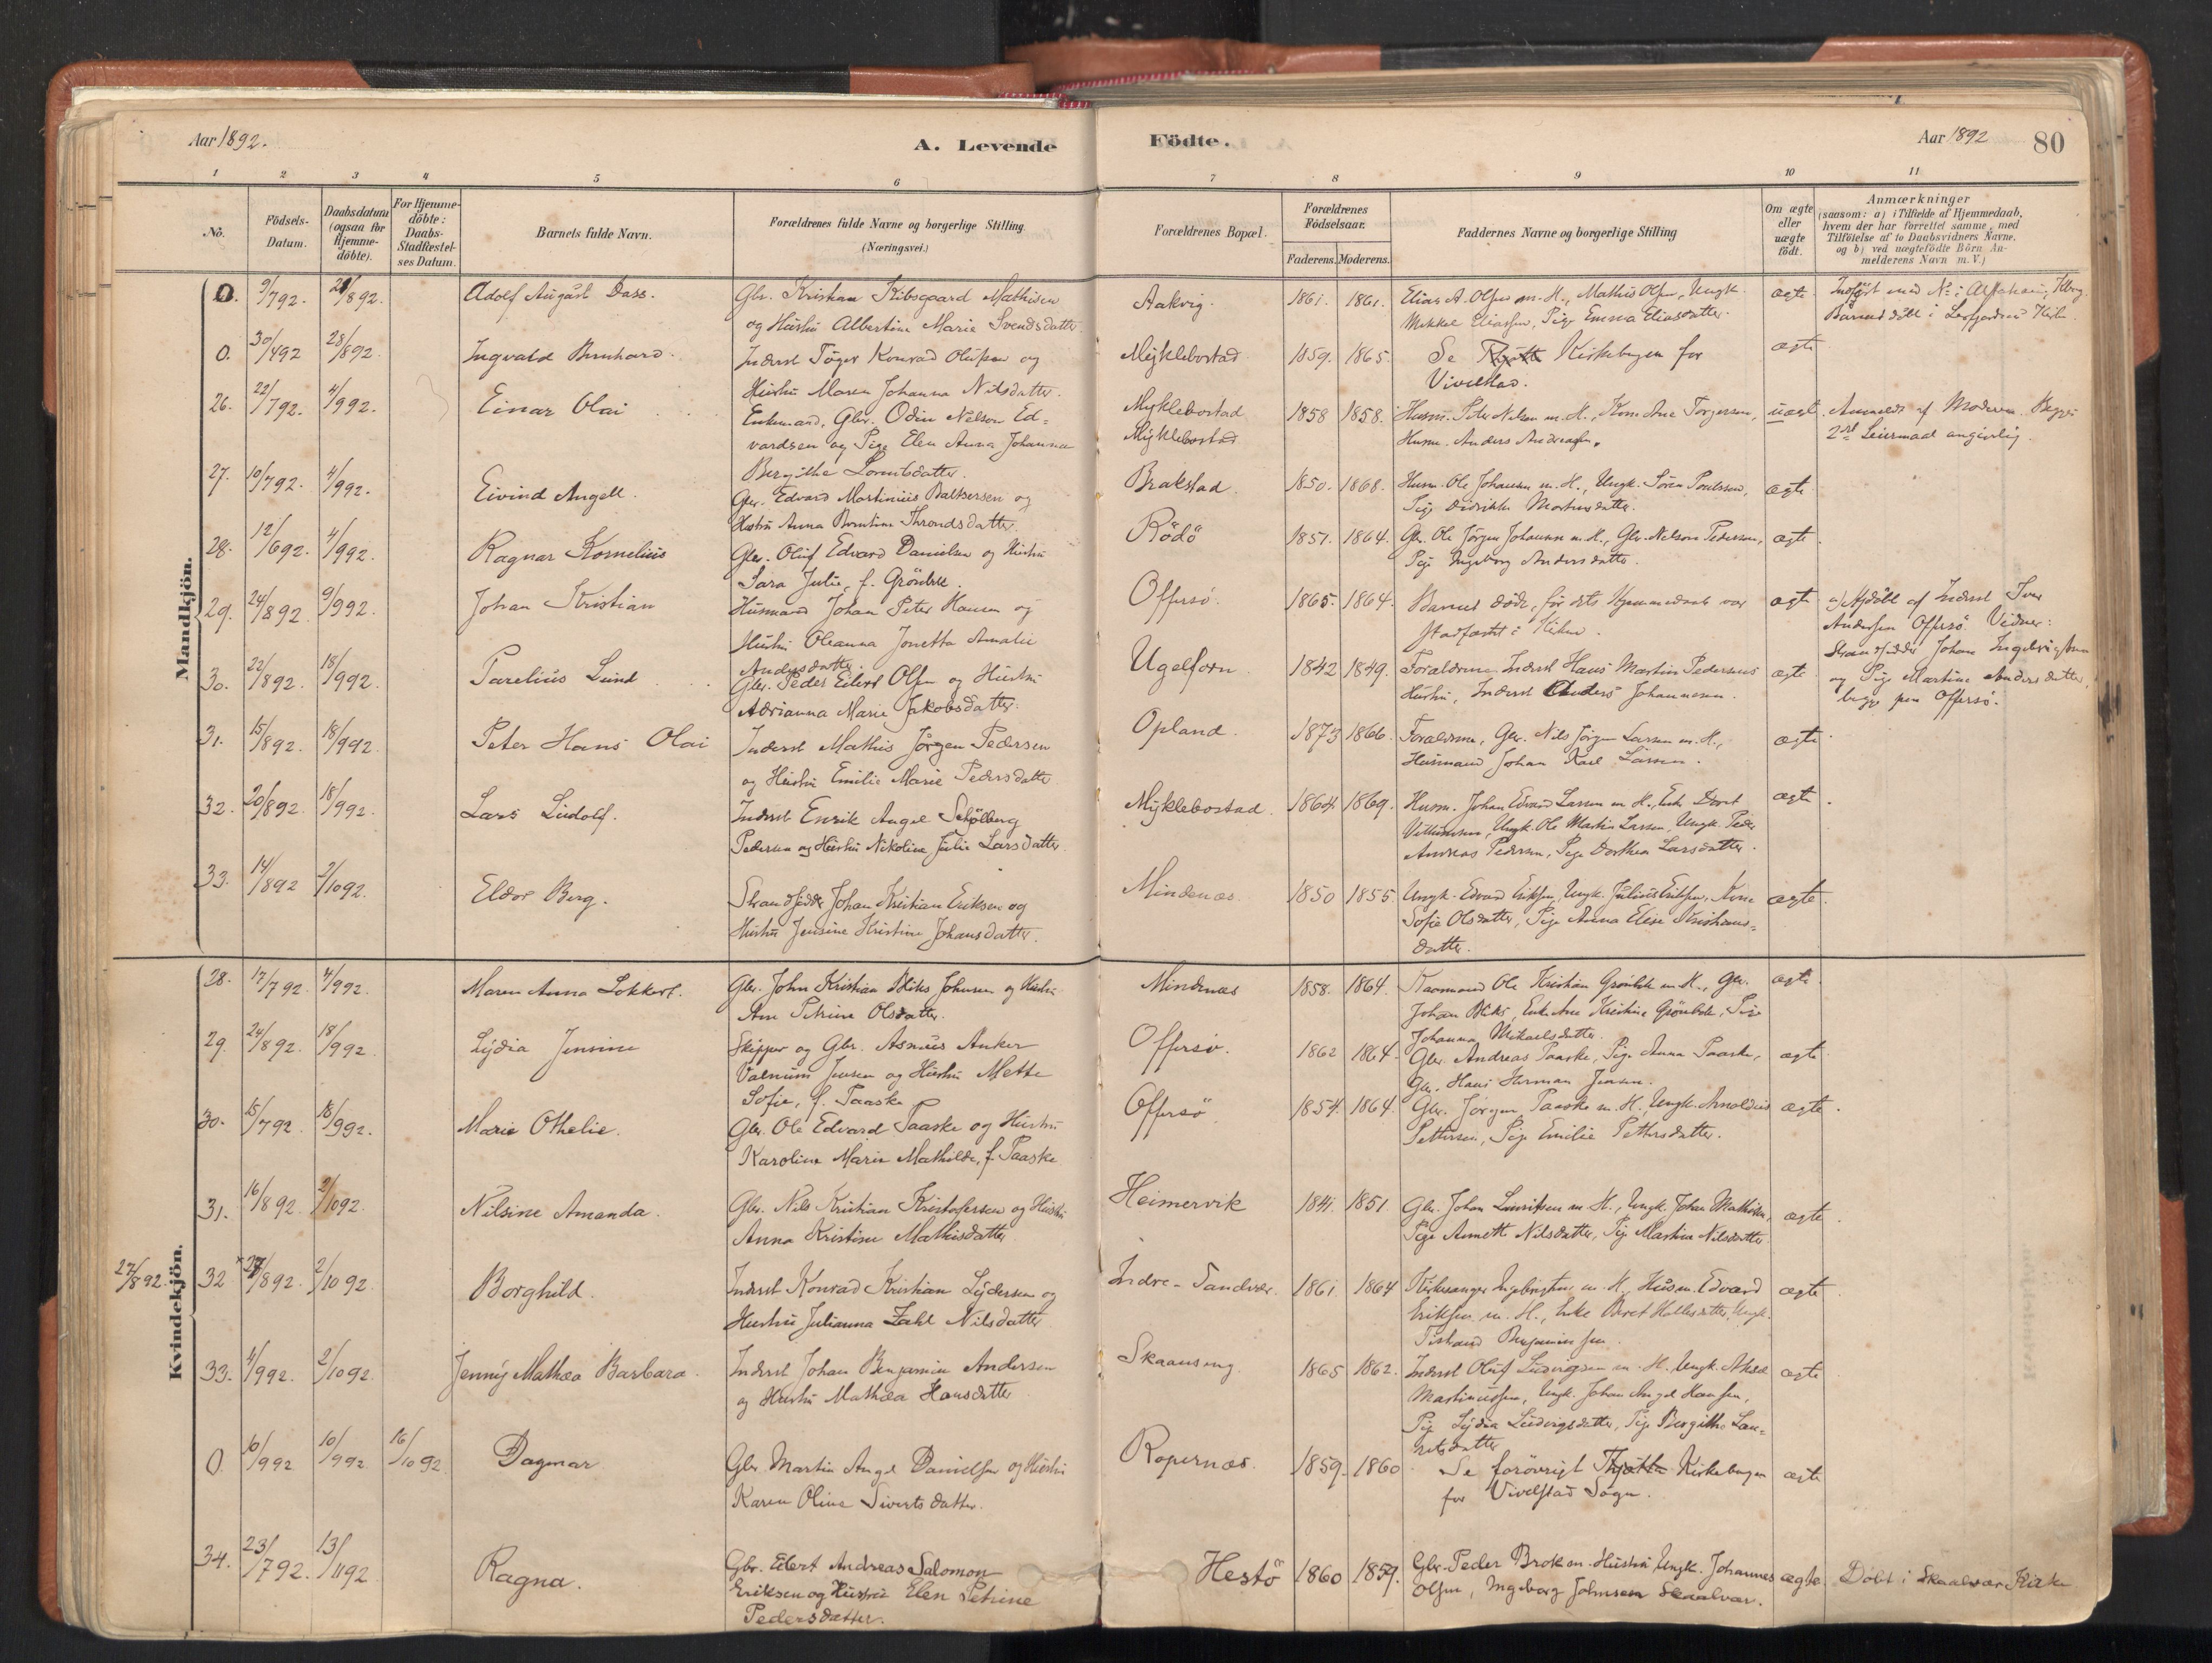 Aar 1892.
A. Levende
Födte.
Aar 1892
80
1 2 3 4 5 6 7 8 9 10 11
No.
Födsels-Datum.
Daabsdatum (ogsaa for Hjemme-döbte).
For Hjemme-döbte: Daabs-Stadfæstel-ses Datum.
Barnets fulde Navn.
Forældrenes fulde Navne og borgerlige Stilling (Næringsvei.)
Forældrenes Bopæl.
Forældrenes Födselsaar.
Faderens. Moderens.
Faddernes Navne og borgerlige Stilling
Om ægte eller uægte födt.
Anmærkninger
(saasom: a) i Tilfælde af Hjemmedaab, hvem der har forrettet samme, med Tilföielse af to Daabsvidners Navne, og b) ved uægtefödte Börn An-melderens Navn m. V.)
Mandkjön.
0. 9/792. 28/892. Adolf August Dass. Gbr. Kristian Kibsgaard Mathisen
og Hustru Albertine Marie Svendsdatter. Aakvig. 1861. 1861. Elias A. Olsen m. H., Mathis Olsen, Ungk.
Mikkel Eliassen, Pige Emma Eliasdatter. ægte
0. 30/492 28/892. Ingvald Bernhard. Inderst Töger Konrad Olufsen og
Hustru Maren Johanna Nilsdatter. Myklebostad 1859. 1865. Se Kirkebogen for
Vivelstad. ægte
26. 22/792. 4/992. Einar Olai Enkemand, Gbr. Odin Nelson Ed-
vardsen og Pige Elen Anna Johanna
Bergithe Lorntsdatter. Myklebostad
Myklebostad 1858 1858. Husm. Peder Nilsen m. H., Kone Ane Torgersen,
Husm. Anders Andreassen. uægte. Anmeldt af Moderen. Begges
2det Leiermaal angivelig.
27. 10/792. 4/992. Eivind Angell. Gbr. Edvard Martinius Baltsersen og
Hustru Anna Berntine Throndsdatter. Brakstad. 1850. 1868. Husm. Ole Johansen m. H., Ungk. Sören Poulssen,
Pige Didrikke Mortensdatter. ægte
28. 12/692. 4/992. Ragnar Kornelius Gbr. Oluf Edvard Danielsen og Hustru
Sara Julie, f. Grönbek. Rödö 1857. 1864. Gbr. Ole Jörgen Johansen m. H., Gbr. Nelson Pedersen,
Pige Ingeborg Andersdatter. ægte
29. 24/892. 9/992. Johan Kristian Husmand Johan Peter Hansen og
Hustru Oleanna Jonetta Amalie
Andersdatter. Offersö. 1865. 1864. Barnet döde, för dets Hjemmedaab var
stadfæstet i Kirken. ægte a) Hjdöbt af Inderst Iver
Andersen Offersö. Vidner:
Strandsidder Johan Ingebrigtsen
og Pige Martine Andersdatter,
begge paa Offersö.
30. 22/892. 18/992. Parelius Lund Gbr. Peder Eilert Olsen og Hustru
Adrianna Marie Jakobsdatter. Ugelforn. 1842 1849. Forældrene, Inderst Hans Martin Pedersens
Hustru, Inderst Anders Johannesen. ægte
31. 15/892. 18/992. Peter Hans Olai Inderst Mathis Jörgen Pedersen
og Hustru Emilie Marie Pedersdatter Opland. 1873 1866. Forældrene, Gbr. Nils Jörgen Larsen m. H.,
Husmand Johan Karl Larsen. ægte
32. 20/892. 18/992. Lars Ludolf. Inderst Enrik Angel Schjölberg
Pedersen og Hustru Nikoline Julie Larsdatter. Myklebostad. 1864. 1869. Husm. Johan Edvard Larsen m. H., Enke Doret
Villumsen, Ungk. Ole Martin Larsen, Ungk. Peder
Andreas Pedersen, Pige Dorthea Larsdatter. ægte
33. 14/892 2/1092. Eldor Berg. Strandsidder Johan Kristian Eriksen og
Hustru Jensine Kristine Johansdatter. Mindenæs. 1850 1855. Ungk. Edvard Eriksen, Ungk. Julius Eriksen, Kone
Sofie Olsdatter, Pige Anna Elise Kristians-
datter. ægte.
Kvindekjön.
28. 17/792. 4/992. Maren Anna Lokkert. Gbr. John Kristian Bliks Johnsen og Hustru
Ane Petrine Olsdatter. Mindenæs 1858. 1864. Kaarmand Ole Kristian Grönbek m. H., Gbr.
Johan Bliks, Enke Ane Kristine Grönbek, Pige
Johanna Mikaelsdatter. ægte
29. 24/892. 18/992. Lydia Jensine Skipper og Gbr. Asmus Anker
Valnum Jensen og Hustru Mette
Sofie, f. Paaske Offersö. 1862 1864. Gbr. Andreas Paaske, Pige Anna Paaske,
Gbr. Hans Herman Jensen. ægte
30. 15/792 18/992. Marie Othelie. Gbr. Ole Edvard Paaske og Hustru
Karoline Marie Mathilde, f. Paaske Offersö 1854. 1864. Gbr. Jörgen Paaske m. H., Ungk. Arnoldus
Pettersen, Pige Emilie Pettersdatter. ægte.
31. 16/892. 2/1092. Nilsine Amanda. Gbr. Nils Kristian Kristofersen og Hustru
Anna Kristine Mathisdatter. Heimervik 1841. 1851. Gbr. Johan Lauritsen m. H., Ungk. Johan Mathisen,
Pige Annette Nilsdatter, Pige Martina Nilsdatter. ægte
27/892. 32 27/892. 2/1092. Borghild. Inderst Konrad Kristian Lydersen og
Hustru Julianna Zahl Nilsdatter. Indre-Sandvær. 1861 1864 Kirkesanger Ingebrigtsen m. H., Husm. Edvard
Eriksen m. H., Enke Beret Hallesdatter, Ungk.
Benjaminsen. ægte
33. 4/992. 2/1092. Jenny Mathea Barbara. Inderst Johan Benjamin Andersen
og Hustru Mathea Hansdatter. Skaanseng. 1865 1862. Inderst Oluf Ludvigsen m. H., Ungk. Aksel
Martinussen, Ungk. Johan Angel Hansen,
Pige Lydia Ludvigsdatter, Pige Bergitha Lau-
ritsdatter ægte
0. 10/992 10/992. 16/1092. Dagmar Gbr. Martin Angel Danielsen og Hustru
Karen Oline Sivertsdatter. Ropernæs. 1859. 1860 Se forövrigt Thjötta Kirkebogen
for Vivelstad Sogn. ægte
34. 23/792. 13/1192. Ragna. Gbr. Edert Andreas Salomon
Eriksen og Hustru Elen Petrine
Pedersdatter. Hestö 1860 1859. Gbr. Peder Brok m. Hustru Ungk. Johannes
Olsen, Ingeborg Johnsen Skaalvær. ægte Döbt i Skaalvær Kirke